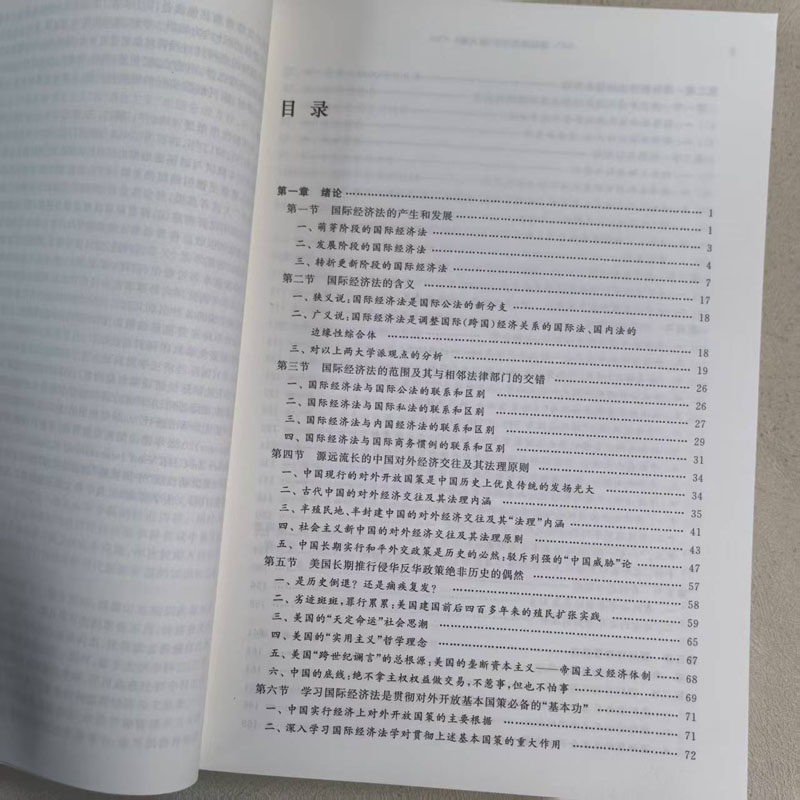 目 录
第一章 绪论 …… 1
第一节 国际经济法的产生和发展 …… 1
一、萌芽阶段的国际经济法 …… 3
二、发展阶段的国际经济法 …… 4
三、转折更新阶段的国际经济法 …… 7
第二节 国际经济法的含义 …… 17
一、狭义说:国际经济法是国际公法的新分支 …… 18
二、广义说:国际经济法是调整国际(跨国)经济关系的国际法、国内法的
边缘性综合体 …… 18
三、对以上两大学派观点的分析 …… 19
第三节 国际经济法的范围及其与相邻法律部门的交错 …… 26
一、国际经济法与国际公法的联系和区别 …… 26
二、国际经济法与国际私法的联系和区别 …… 27
三、国际经济法与内国经济法的联系和区别 …… 29
四、国际经济法与国际商务惯例的联系和区别 …… 31
第四节 源远流长的中国对外经济交往及其法理原则 …… 34
一、中国现行的对外开放国策是中国历史上优良传统的发扬光大 …… 34
二、古代中国的对外经济交往及其法理内涵 …… 35
三、半殖民地、半封建中国的对外经济交往及其“法理”内涵 …… 41
四、社会主义新中国的对外经济交往及其法理原则 …… 43
五、中国长期实行和平外交政策是历史的必然;驳斥列强的“中国威胁”论 …… 47
第五节 美国长期推行侵华反华政策绝非历史的偶然 …… 57
一、是历史倒退?还是痼疾复发? …… 58
二、劣迹斑斑,罪行累累:美国建国前后四百多年来的殖民扩张实践 …… 59
三、美国的“天定命运”社会思潮 …… 65
四、美国的“实用主义”哲学理念 …… 67
五、美国“跨世纪谰言”的总根源:美国的垄断资本主义——帝国主义经济体制 …… 68
六、中国的底线:绝不拿主权权益做交易,不惹事,但也不怕事 …… 69
第六节 学习国际经济法是贯彻对外开放基本国策必备的“基本功” …… 71
一、中国实行经济上对外开放国策的主要根据 …… 71
二、深入学习国际经济法学对贯彻上述基本国策的重大作用 …… 72